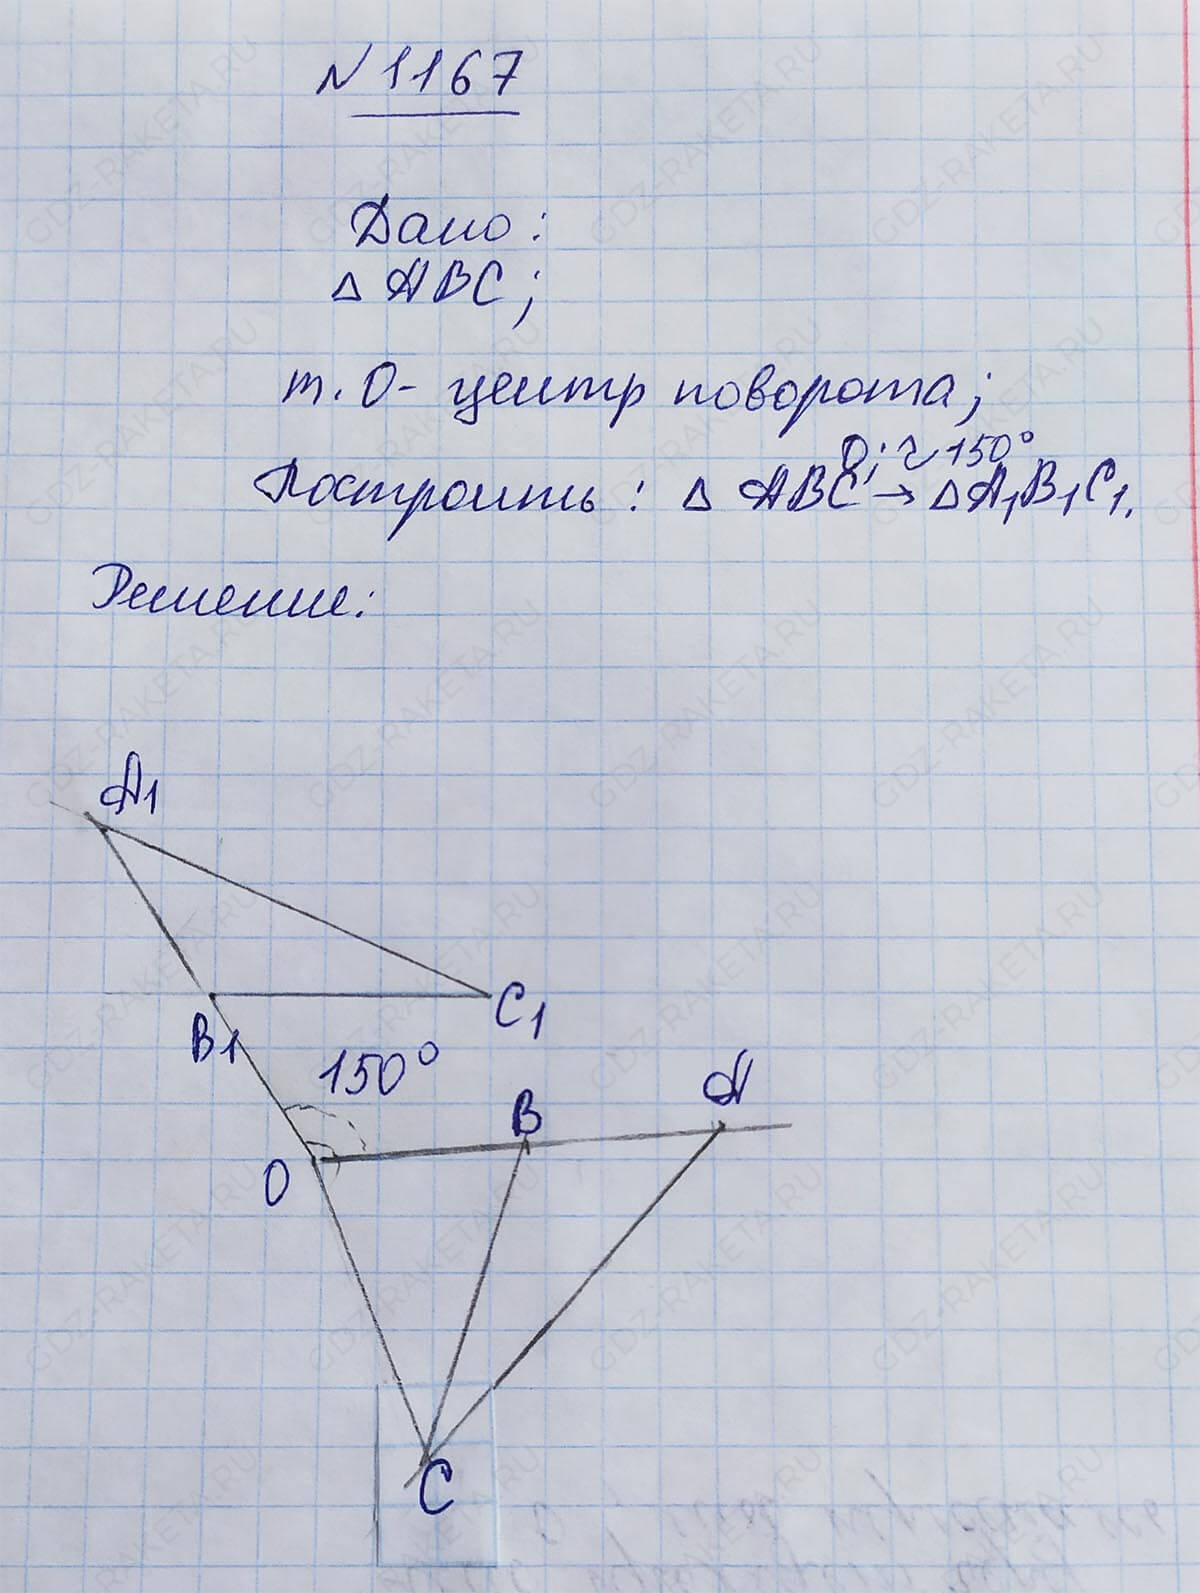 N 1167
Дано:
Δ ABC;
т. О - центр поворота;
О; ↷ 150°
Построить: Δ ABC → Δ A₁B₁C₁.
Решение:
A1
B1
C1
150°
B
A
O
C
GDZ-RAKETA.RU